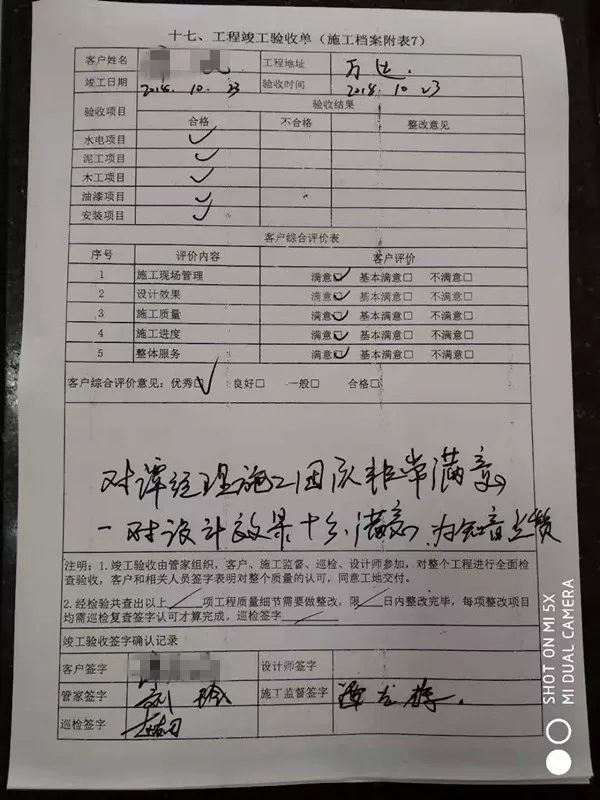 十七、工程竣工验收单（施工档案附表7）
客户姓名 工程地址 万达
竣工日期 2018.10.23 验收时间 2018.10 23
验收项目 验收结果
合格 不合格 整改意见
水电项目 ✓
泥工项目 ✓
木工项目 ✓
油漆项目 ✓
安装项目 ✓
客户综合评价表
序号 评价内容 客户评价
1 施工现场管理 满意☑ 基本满意□ 不满意□
2 设计效果 满意☑ 基本满意□ 不满意□
3 施工质量 满意☑ 基本满意□ 不满意□
4 施工进度 满意☑ 基本满意□ 不满意□
5 整体服务 满意☑ 基本满意□ 不满意□
客户综合评价意见：优秀☑ 良好□ 一般□ 合格□
对谭经理施工团队非常满意，
对设计效果十分满意，为知音点赞
注明：1.竣工验收由管家组织，客户、施工监督、巡检、设计师参加，对整个工程进行全面检
查验收，客户和相关人员签字表明对整个质量的认可，同意工地交付。
2.经检验共查出以上 / 项工程质量细节需要做整改，限 / 日内整改完毕，每项整改项目
均需巡检复查签字认可才算完成，巡检签字 /
竣工验收签字确认记录
客户签字 设计师签字
管家签字 施工监督签字
巡检签字
SHOT ON MI 5X
MI DUAL CAMERA